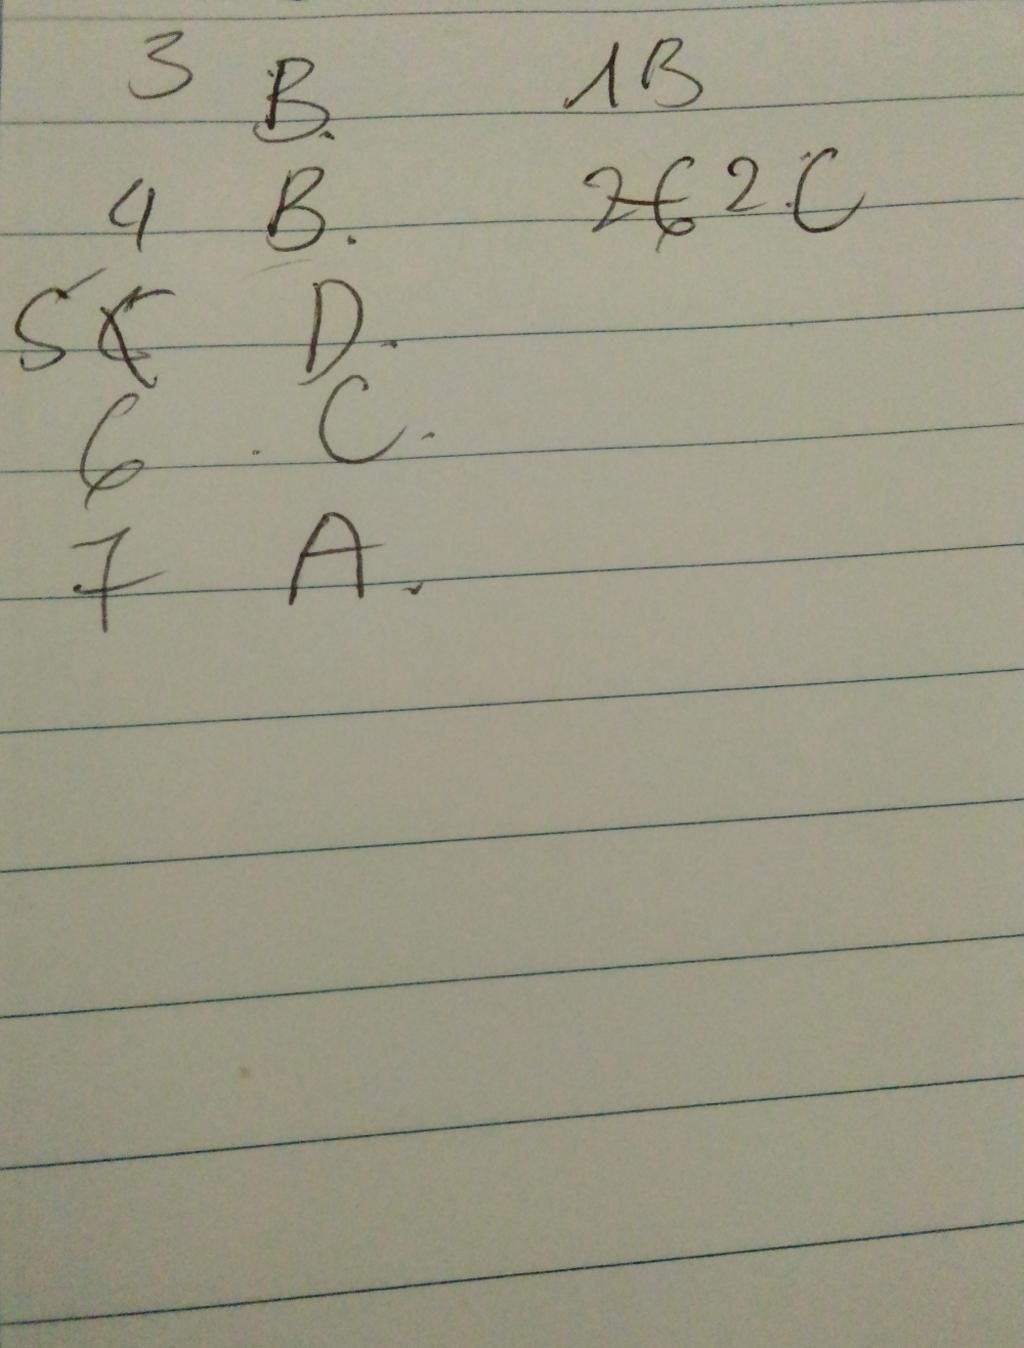 3 B. 1B
4 B. 2 C
5 D.
6 . C.
7 A.